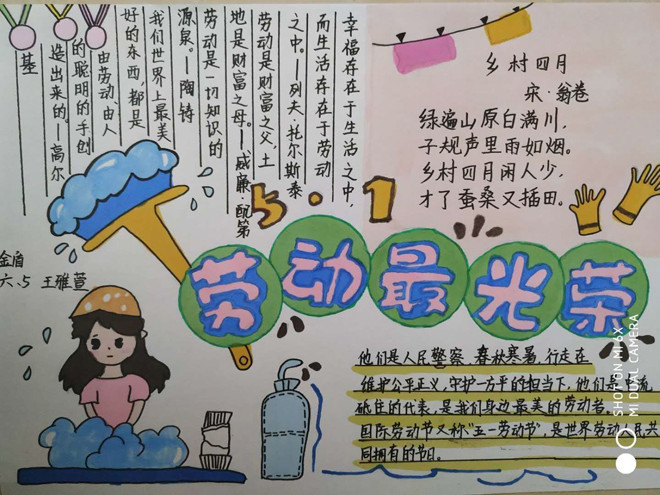 幸福存在于生活之中，
而生活存在于劳动
之中。—列夫·托尔斯泰
劳动是财富之父，土
地是财富之母。—威廉·配第
劳动是一切知识的
源泉。—陶铸
我们世界上最美
好的东西，都是
由劳动、由人
的聪明的手创
造出来的。—高尔
基
乡村四月
宋·翁卷
绿遍山原白满川，
子规声里雨如烟。
乡村四月闲人少，
才了蚕桑又插田。
5·1
劳动最光荣
金盾
六、5 王雅萱
他们是人民警察，春秋寒暑，行走在
维护公平正义，守护一方平的担当下，他们是中流
砥柱的代表，是我们身边最美的劳动者。
国际劳动节又称"五一劳动节"，是世界劳动人民共
同拥有的节日。
SHOT ON MI 6X
MI DUAL CAMERA